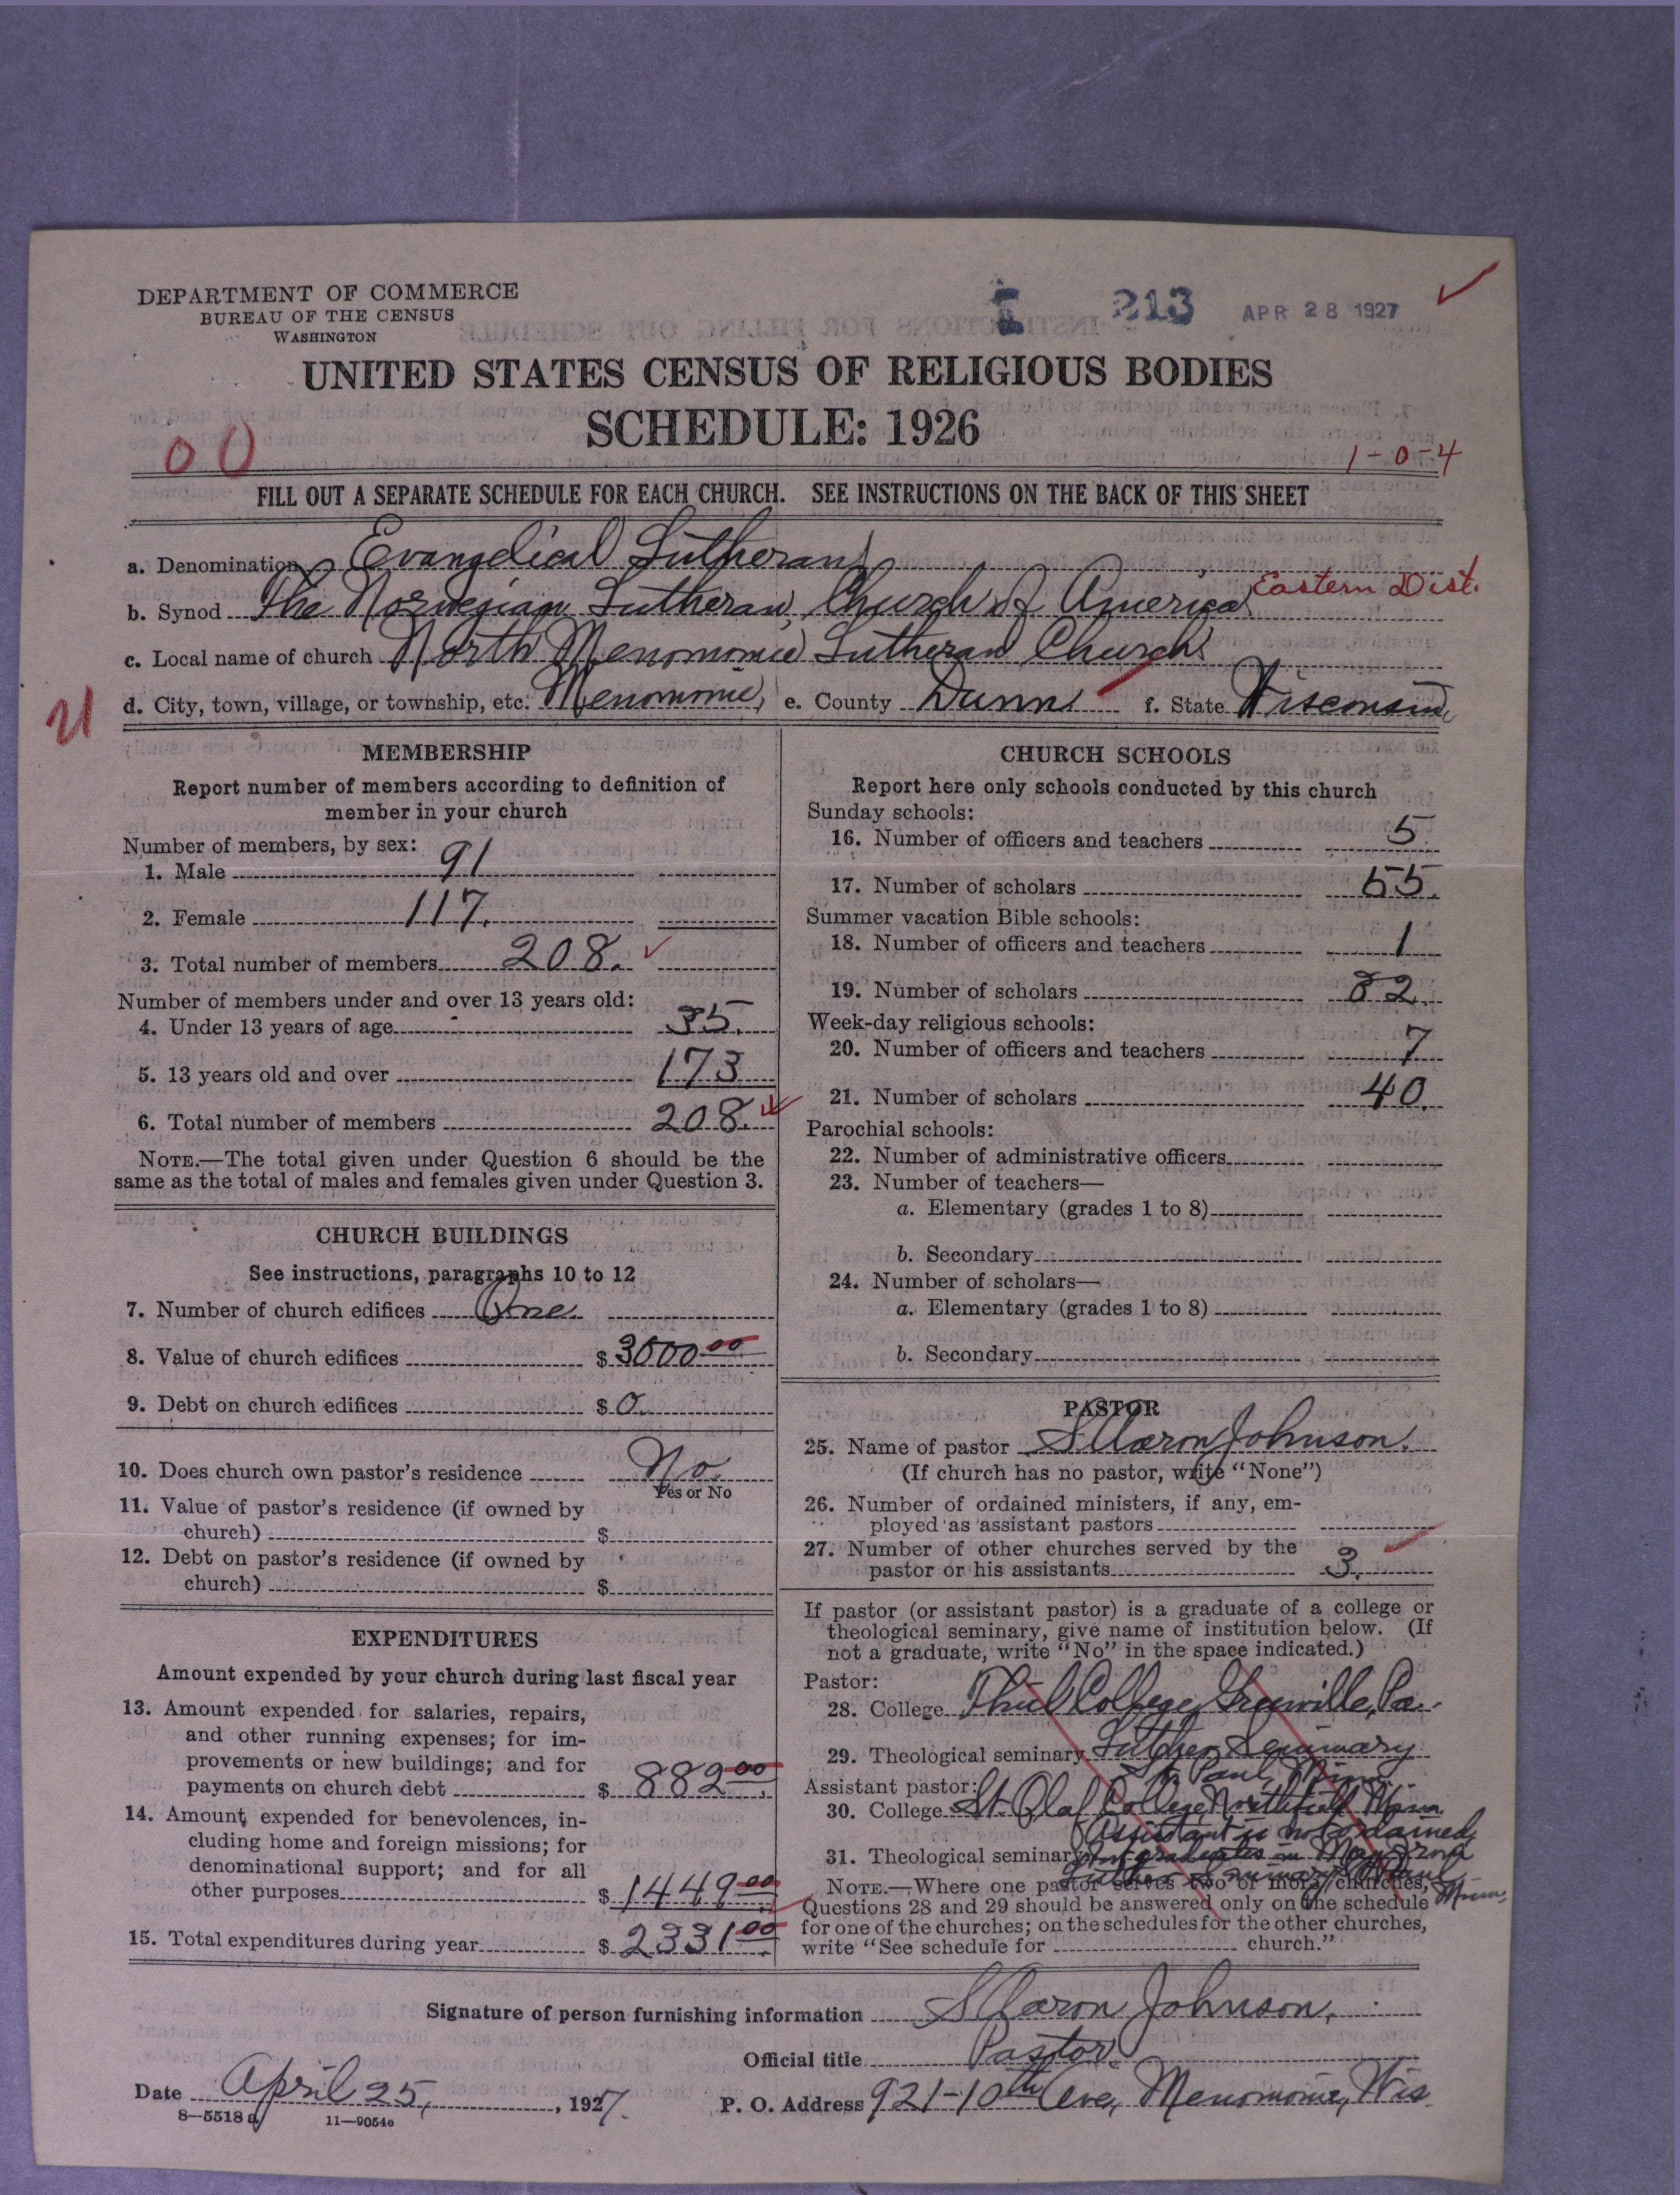 DEPARTMENT OF COMMERCE
BUREAU OF THE CENSUS
WASHINGTON
213 APR 28 1927
UNITED STATES CENSUS OF RELIGIOUS BODIES
SCHEDULE: 1926
00
1-0-4
FILL OUT A SEPARATE SCHEDULE FOR EACH CHURCH. SEE INSTRUCTIONS ON THE BACK OF THIS SHEET
a. Denomination Evangelical Lutheran
b. Synod The Norwegian Lutheran Church of America Eastern Dist.
c. Local name of church North Menomonie Lutheran Church
d. City, town, village, or township, etc. Menomonie, e. County Dunn f. State Wisconsin
MEMBERSHIP
Report number of members according to definition of
member in your church
Number of members, by sex:
1. Male 91
2. Female 117.
3. Total number of members 208.
Number of members under and over 13 years old:
4. Under 13 years of age 35.
5. 13 years old and over 173
6. Total number of members 208.
NOTE.—The total given under Question 6 should be the
same as the total of males and females given under Question 3.
CHURCH BUILDINGS
See instructions, paragraphs 10 to 12
7. Number of church edifices One.
8. Value of church edifices $ 3000.00
9. Debt on church edifices $ 0.
10. Does church own pastor's residence No.
Yes or No
11. Value of pastor's residence (if owned by
church) $
12. Debt on pastor's residence (if owned by
church) $
EXPENDITURES
Amount expended by your church during last fiscal year
13. Amount expended for salaries, repairs,
and other running expenses; for im-
provements or new buildings; and for
payments on church debt $ 882.00
14. Amount expended for benevolences, in-
cluding home and foreign missions; for
denominational support; and for all
other purposes $ 1449.00
15. Total expenditures during year $ 2331.00
CHURCH SCHOOLS
Report here only schools conducted by this church
Sunday schools:
16. Number of officers and teachers 5.
17. Number of scholars 55.
Summer vacation Bible schools:
18. Number of officers and teachers 1
19. Number of scholars 82.
Week-day religious schools:
20. Number of officers and teachers 7
21. Number of scholars 40.
Parochial schools:
22. Number of administrative officers
23. Number of teachers—
a. Elementary (grades 1 to 8)
b. Secondary
24. Number of scholars—
a. Elementary (grades 1 to 8)
b. Secondary
PASTOR
25. Name of pastor S Aaron Johnson.
(If church has no pastor, write "None")
26. Number of ordained ministers, if any, em-
ployed as assistant pastors
27. Number of other churches served by the
pastor or his assistants 3.
If pastor (or assistant pastor) is a graduate of a college or
theological seminary, give name of institution below. (If
not a graduate, write "No" in the space indicated.)
Pastor:
28. College Thiel College, Greenville, Pa.
29. Theological seminary Luther Seminary
St. Paul, Minn.
Assistant pastor:
30. College St. Olaf College, Northfield Minn.
Assistant is not ordained
31. Theological seminary graduates in May from
Luther Seminary St Paul
Minn.
NOTE.—Where one pastor serves two or more churches,
Questions 28 and 29 should be answered only on the schedule
for one of the churches; on the schedules for the other churches,
write "See schedule for church."
Signature of person furnishing information S Aaron Johnson,
Official title Pastor.
Date April 25, 1927. P. O. Address 921-10th Ave, Menomonie, Wis.
8—5518 a 11—9054c